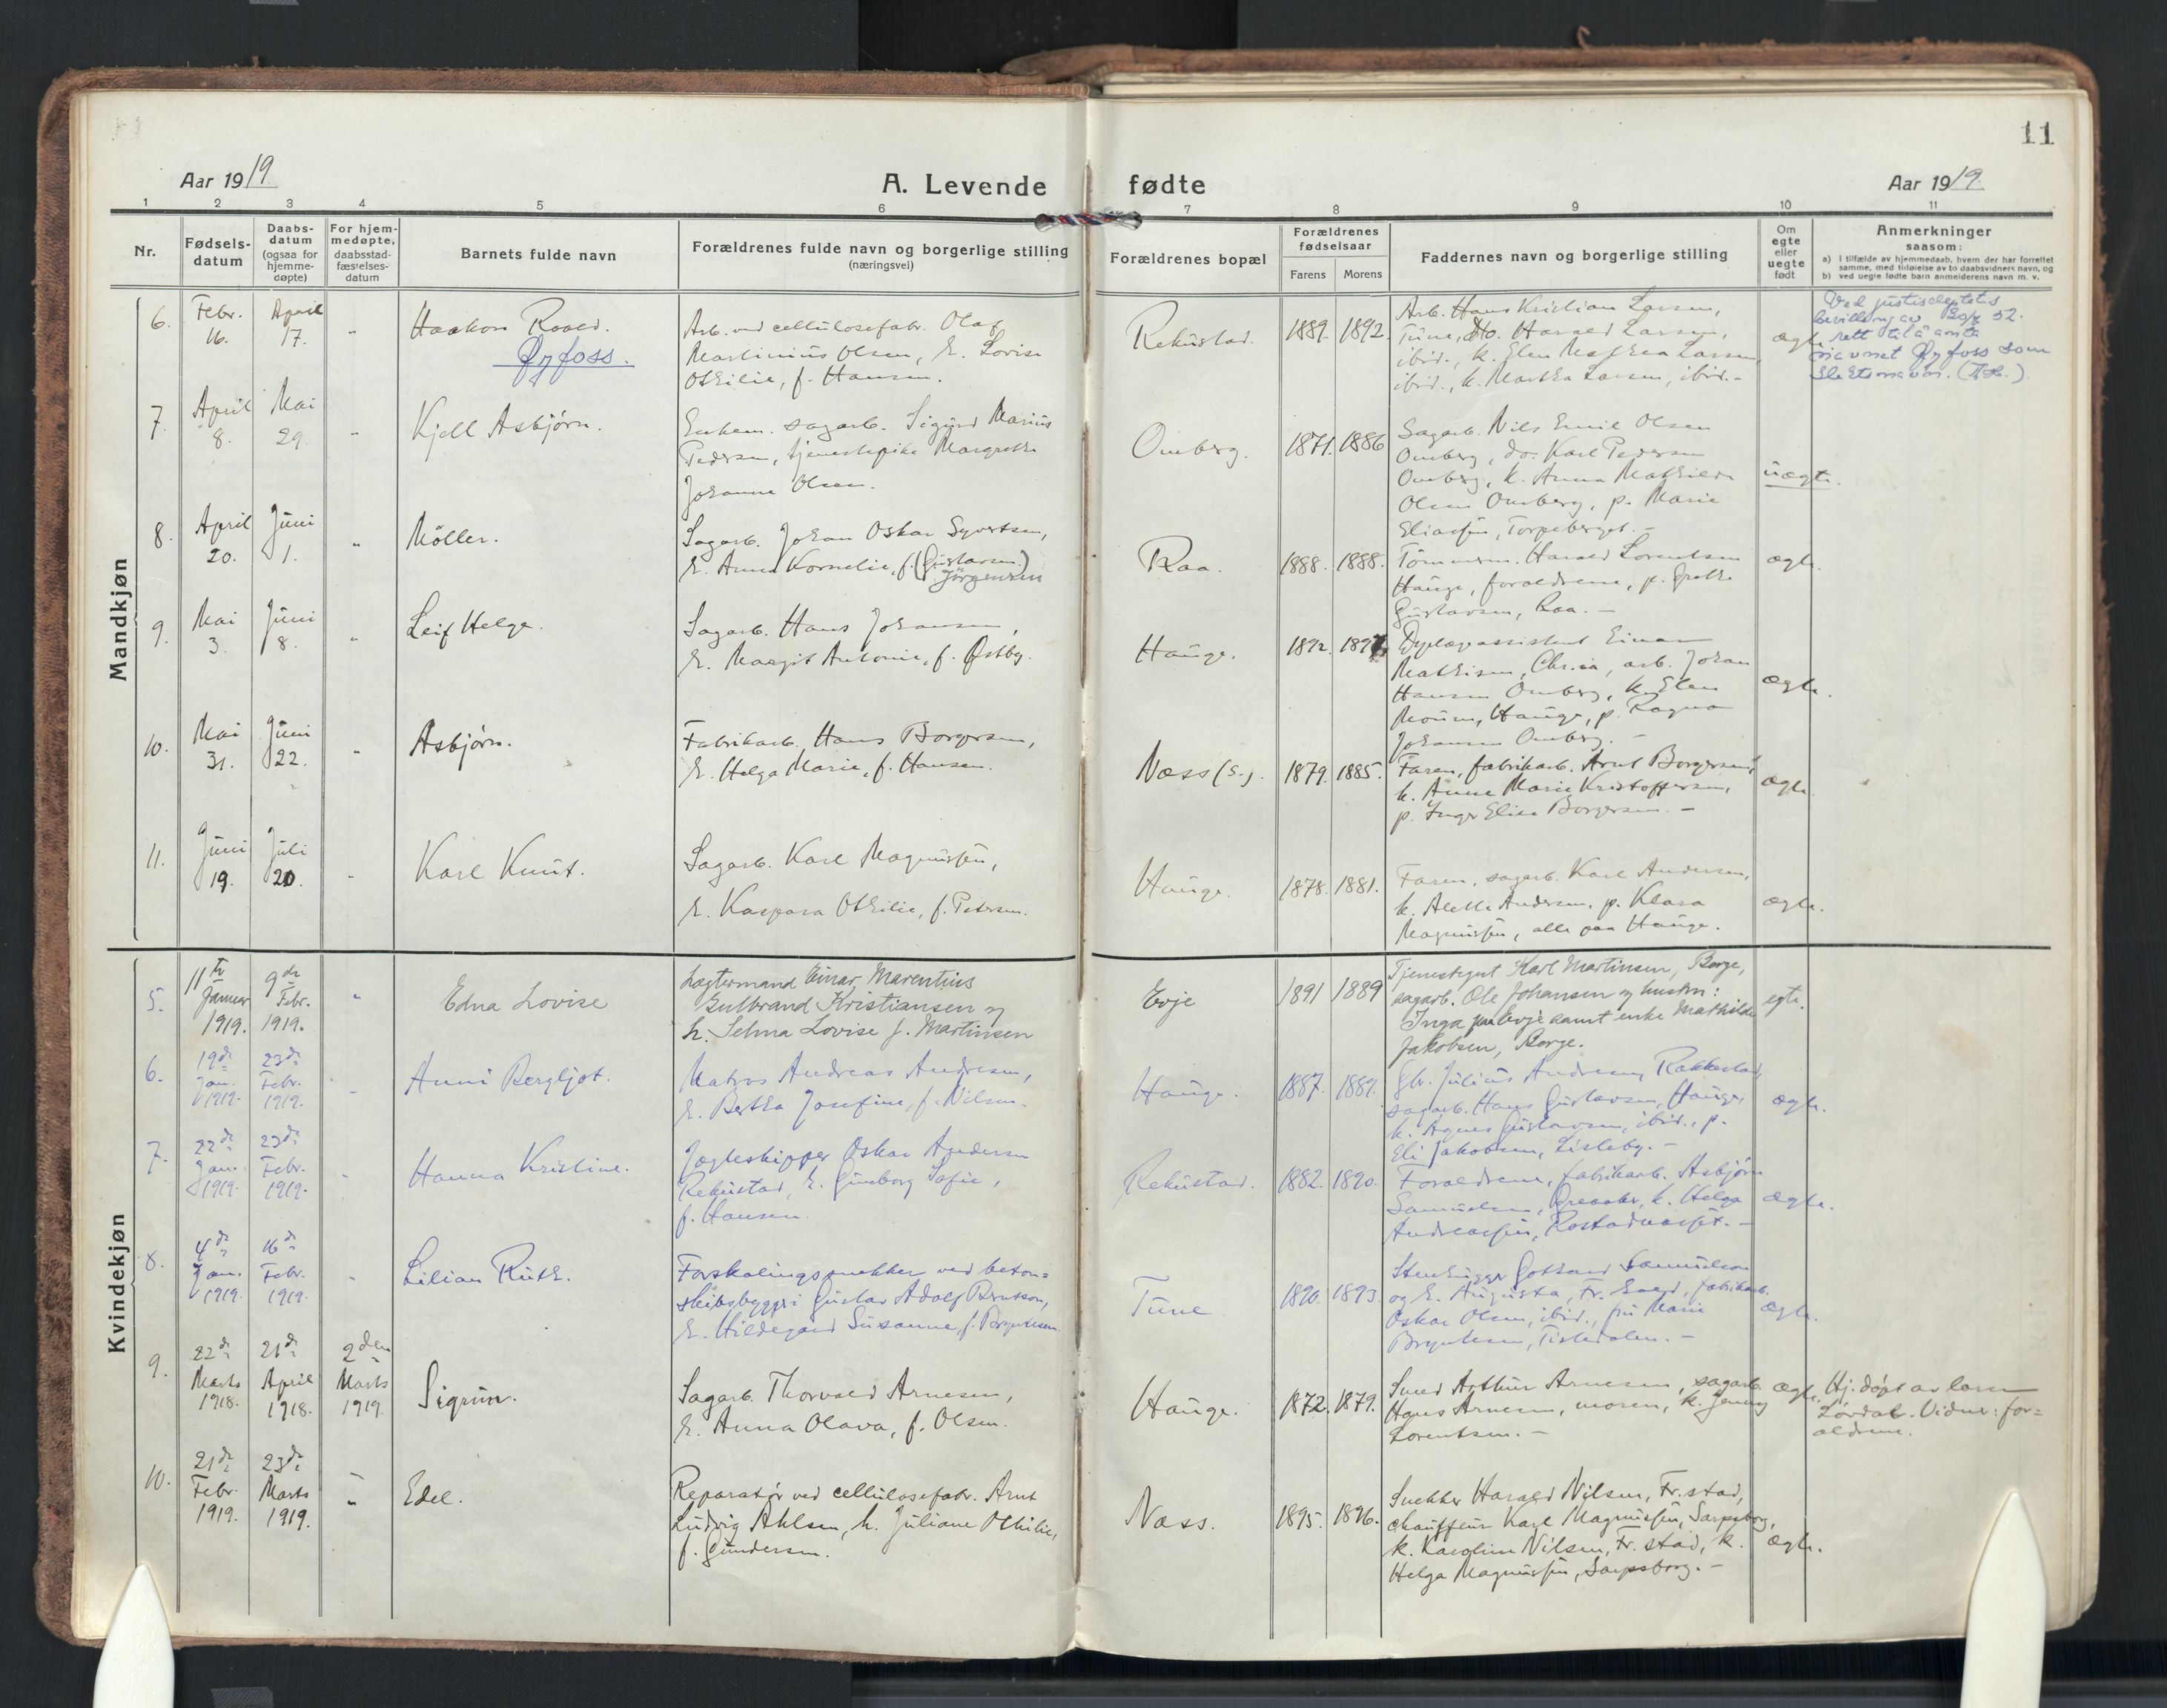 11
Aar 1919
A. Levende fødte
Aar 1919.
1 2 3 4 5 6 7 8 9 10 11
Nr.
Fødsels-
datum
Daabs-
datum
(ogsaa for
hjemme-
døpte)
For hjem-
medøpte,
daabsstad-
fæstelses-
datum
Barnets fulde navn
Forældrenes fulde navn og borgerlige stilling
(næringsvei)
Forældrenes bopæl
Forældrenes
fødselsaar
Farens Morens
Faddernes navn og borgerlige stilling
Om
egte
eller
uegte
født
Anmerkninger
saasom:
a) i tilfælde av hjemmedaab, hvem der har forrettet
samme, med tilføielse av to daabsvidners navn, og
b) ved uegte fødte barn anmelderens navn m. v.
Mandkjøn
6.
Febr.
16.
April
17.
Haakon Roald.
Øyfoss.
Arb. ved cellulosefabr. Olaf
Martinius Olsen, h. Lovise
Othilie, f. Hansen.
Rekustad.
1889. 1892.
Arb. Hans Kristian Larsen,
Tune, do. Harald Larsen,
ibid., k. Elen Mathea Larsen,
ibid., k. Martha Larsen, ibid.-
ægte
Ved justisdeptets
bevilling av 52.
rett til å anta
navnet Øyfoss som
slektsnavn.
7.
April
8.
Mai
29.
Kjell Asbjørn.
Enkem. sagarb. Sigurd Marius
Pedersen, tjenestepike Margrethe
Johanne Olsen.
Omberg.
1871. 1886
Sagarb. Nils Emil Olsen
Omberg, do. Karl Pedersen
Omberg, k. Anna Mathilde
Olsen Omberg, p. Marie
Eliassen, Torpeberget. -
uægte.
8.
April
20.
Juni
1.
Möller.
Sagarb. Johan Oskar Syvertsen,
h. Anna Kornelie, f. (Gustavsen)
Jörgensen
Raa.
1888. 1888.
Tömmerm. Harald Lorentsen
Hauge, forældrene, p. Grethe
Gustavsen, Raa. -
ægte.
9.
Mai
3.
Juni
8.
Leif Helge.
Sagarb. Hans Johansen,
h. Margit Antonie, f. Østby.
Hauge.
1892. 1897.
Einar
Mathisen, Chr.ia, arb. Johan
Hansen Omberg, k. Elen
Moum, Hauge, p. Ragna
Johansen Omberg. -
ægte.
10.
Mai
31.
Juni
22.
Asbjørn.
Fabrikarb. Hans Borgersen,
h. Helga Marie, f. Hansen.
Næss (s.).
1879. 1885.
Faren, fabrikarb. Arnt Borgersen,
k. Anne Marie Kristoffersen,
p. Inger Elise Borgersen. -
ægte.
11.
Juni
19.
Juli
20.
Karl Knut.
Sagarb. Karl Magnussen,
h. Kaspara Othilie, f. Petersen.
Hauge.
1878. 1881.
Faren, sagarb. Karl Andersen,
k. Alette Andersen, p. Klara
Magnussen, alle paa Hauge.
ægte.
Kvindekjøn
5.
11te
Januar
1919.
9de
Febr.
1919.
Edna Lovise
Lægtermand Einar Marentius
Gulbrand Kristiansen og
h. Selma Lovise f. Martinsen
Evje
1891 1889
Tjenestegut Karl Martinsen, Borge,
sagarb. Ole Johansen og hustru:
Inga paa Evje samt enke Mathilde
Jakobsen, Borge.
egte.
6.
19de
Jan.
1919.
23de
Febr.
1919.
Anni Bergljot.
Matros Andreas Andresen,
h. Bertha Josefine, f. Nilsen.
Hauge.
1887. 1889.
Gbr. Julius Andresen, Rakkestad,
sagarb. Hans Gustavsen, Hauge,
k. Agnes Gustavsen, ibid., p.
Eli Jakobsen, Lisleby. -
ægte.
7.
22de
Jan.
1919.
23de
Febr.
1919.
Hanna Kristine.
Jægteskipper Oskar Andersen
Rekustad, h. Gunborg Sofie,
f. Hansen.
Rekustad.
1882. 1890.
Forældrene, fabrikarb. Asbjørn
Samuelsen, Greaaker, k. Helga
Andreassen,
ægte.
8.
4de
Jan.
1919.
16de
Febr.
1919.
Lilian Ruth.
Forskalingssnekker ved beton=
skibsbyggeri Gustav Adolf Berntson,
h. Hildegard Susanne, f. Bryntesen.
Tune
1890. 1893.
Stenhugger Gothard Samuelson
og h. Augusta, fabrikarb.
Oskar Olsen, ibid., fru Marie
Bryntesen, Tistedalen. -
ægte.
9.
22de
Marts
1918.
21de
April
1918.
2den
Marts
1919.
Sigrun.
Sagarb. Thorvald Arnesen,
h. Anna Olava, f. Olsen.
Hauge.
1872. 1879.
Smed Arthur Arnesen, sagarb.
Hans Arnesen, moren, k. Jenny
Lorentsen. -
ægte.
Hj. døpt av
Lövdal. Vidner: for=
ældrene.
10.
21de
Febr.
1919.
23de
Marts
1919.
Edel.
Reparatør ved cellulosefabr. Arnt
Ludvig Ahlsen, h. Juliane Othilie,
f. Gundersen.
Næss.
1895. 1896.
Snekker Harald Nilsen, Fr.stad,
chauffeur Karl Magnussen, Sarpsborg,
k. Karoline Nilsen, Fr.stad, k.
Helga Magnussen, Sarpsborg. -
ægte.